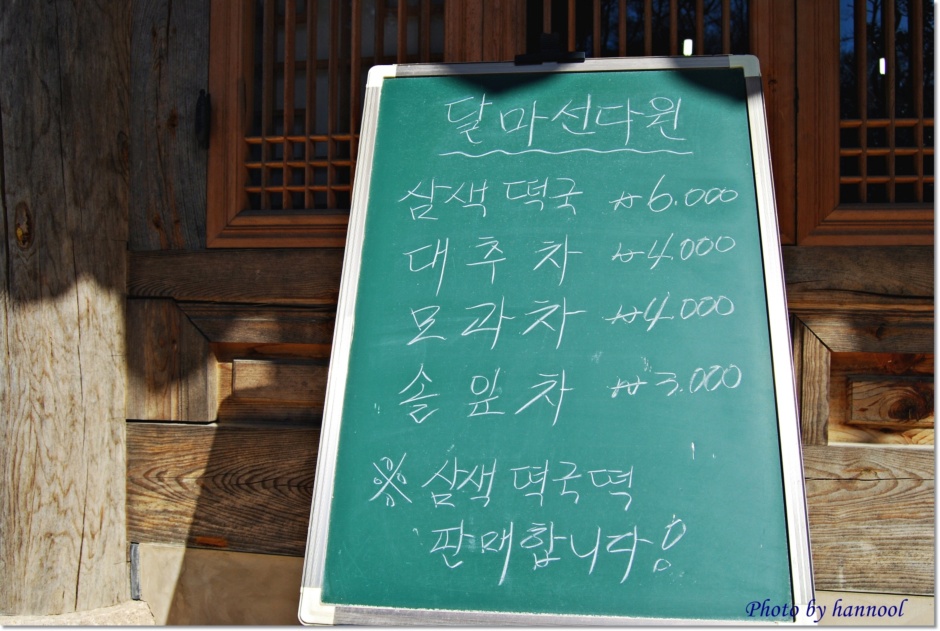 달마선다원
삼색 떡국 ₩6.000
대추차 ₩4.000
모과차 ₩4.000
솔잎차 ₩3.000
※ 삼색 떡국떡
판매합니다!
Photo by hannool